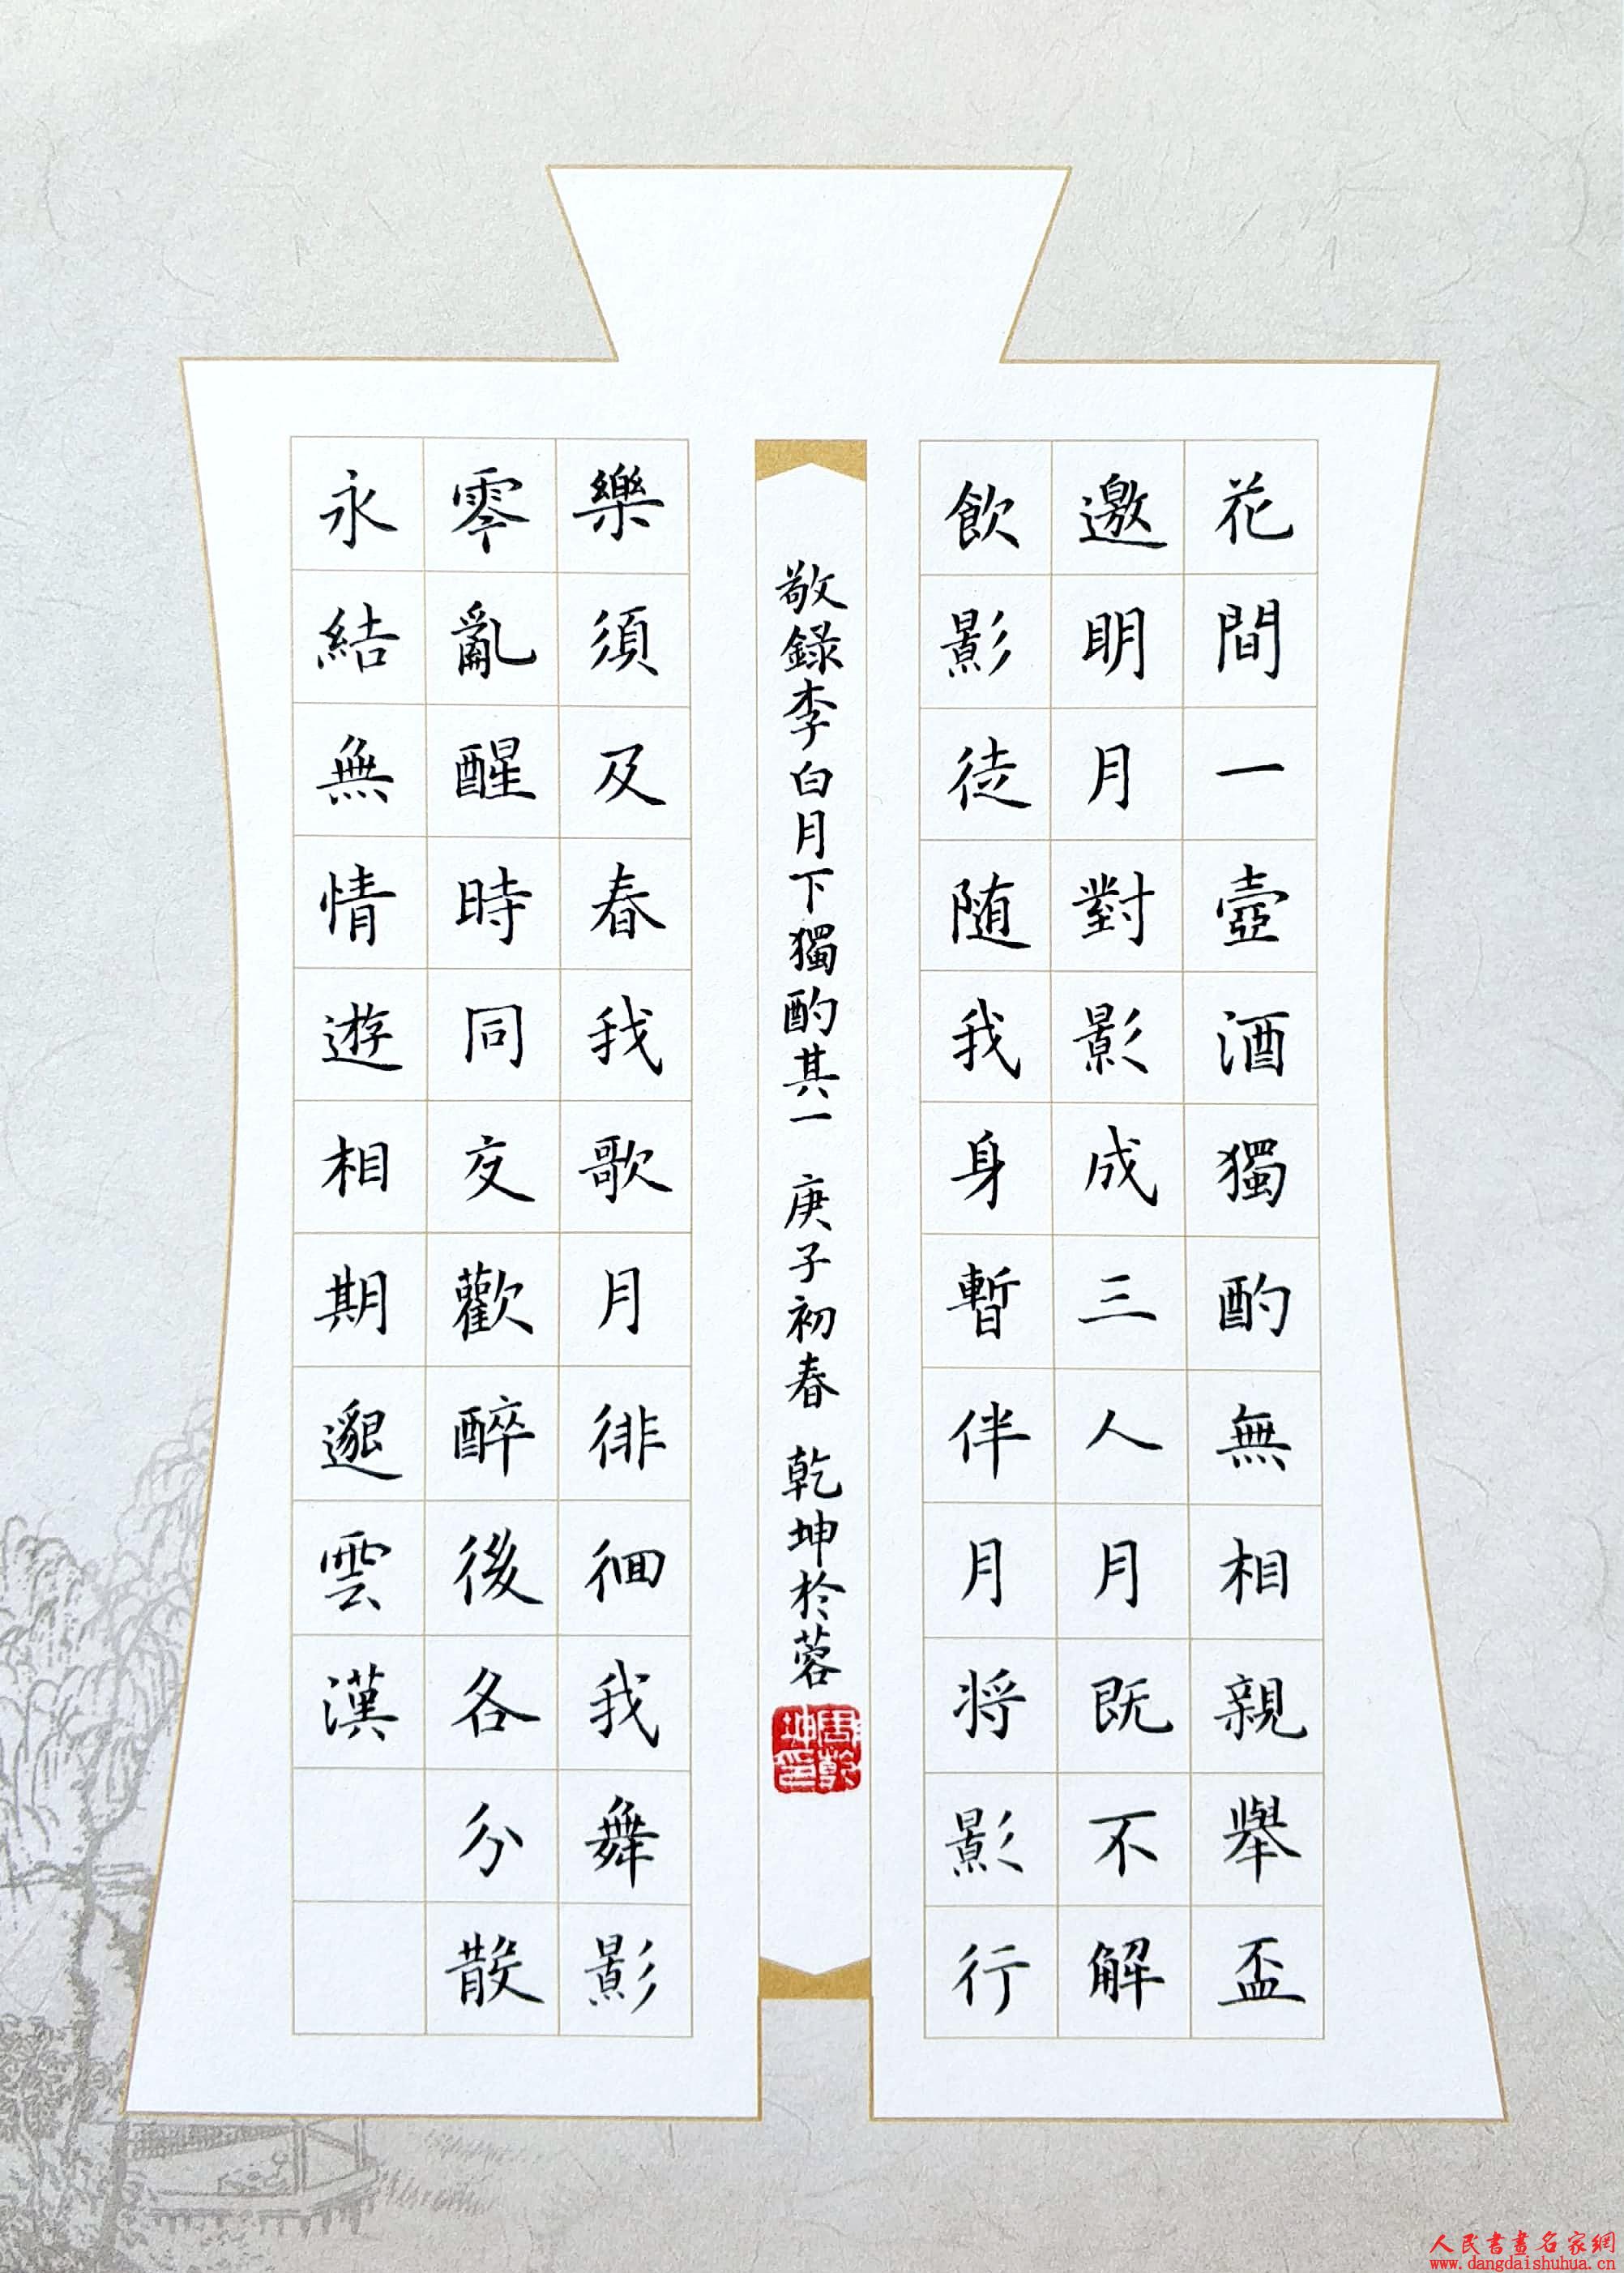 花間一壺酒獨酌無相親舉盃
邀明月對影成三人月既不解
飲影徒随我身暫伴月将影行
敬錄李白月下獨酌其一 庚子初春 乾坤於蓉
周乾坤印
樂須及春我歌月徘徊我舞影
零亂醒時同交歡醉後各分散
永結無情遊相期邈雲漢
人民書畫名家網
www.dangdaishuhua.cn